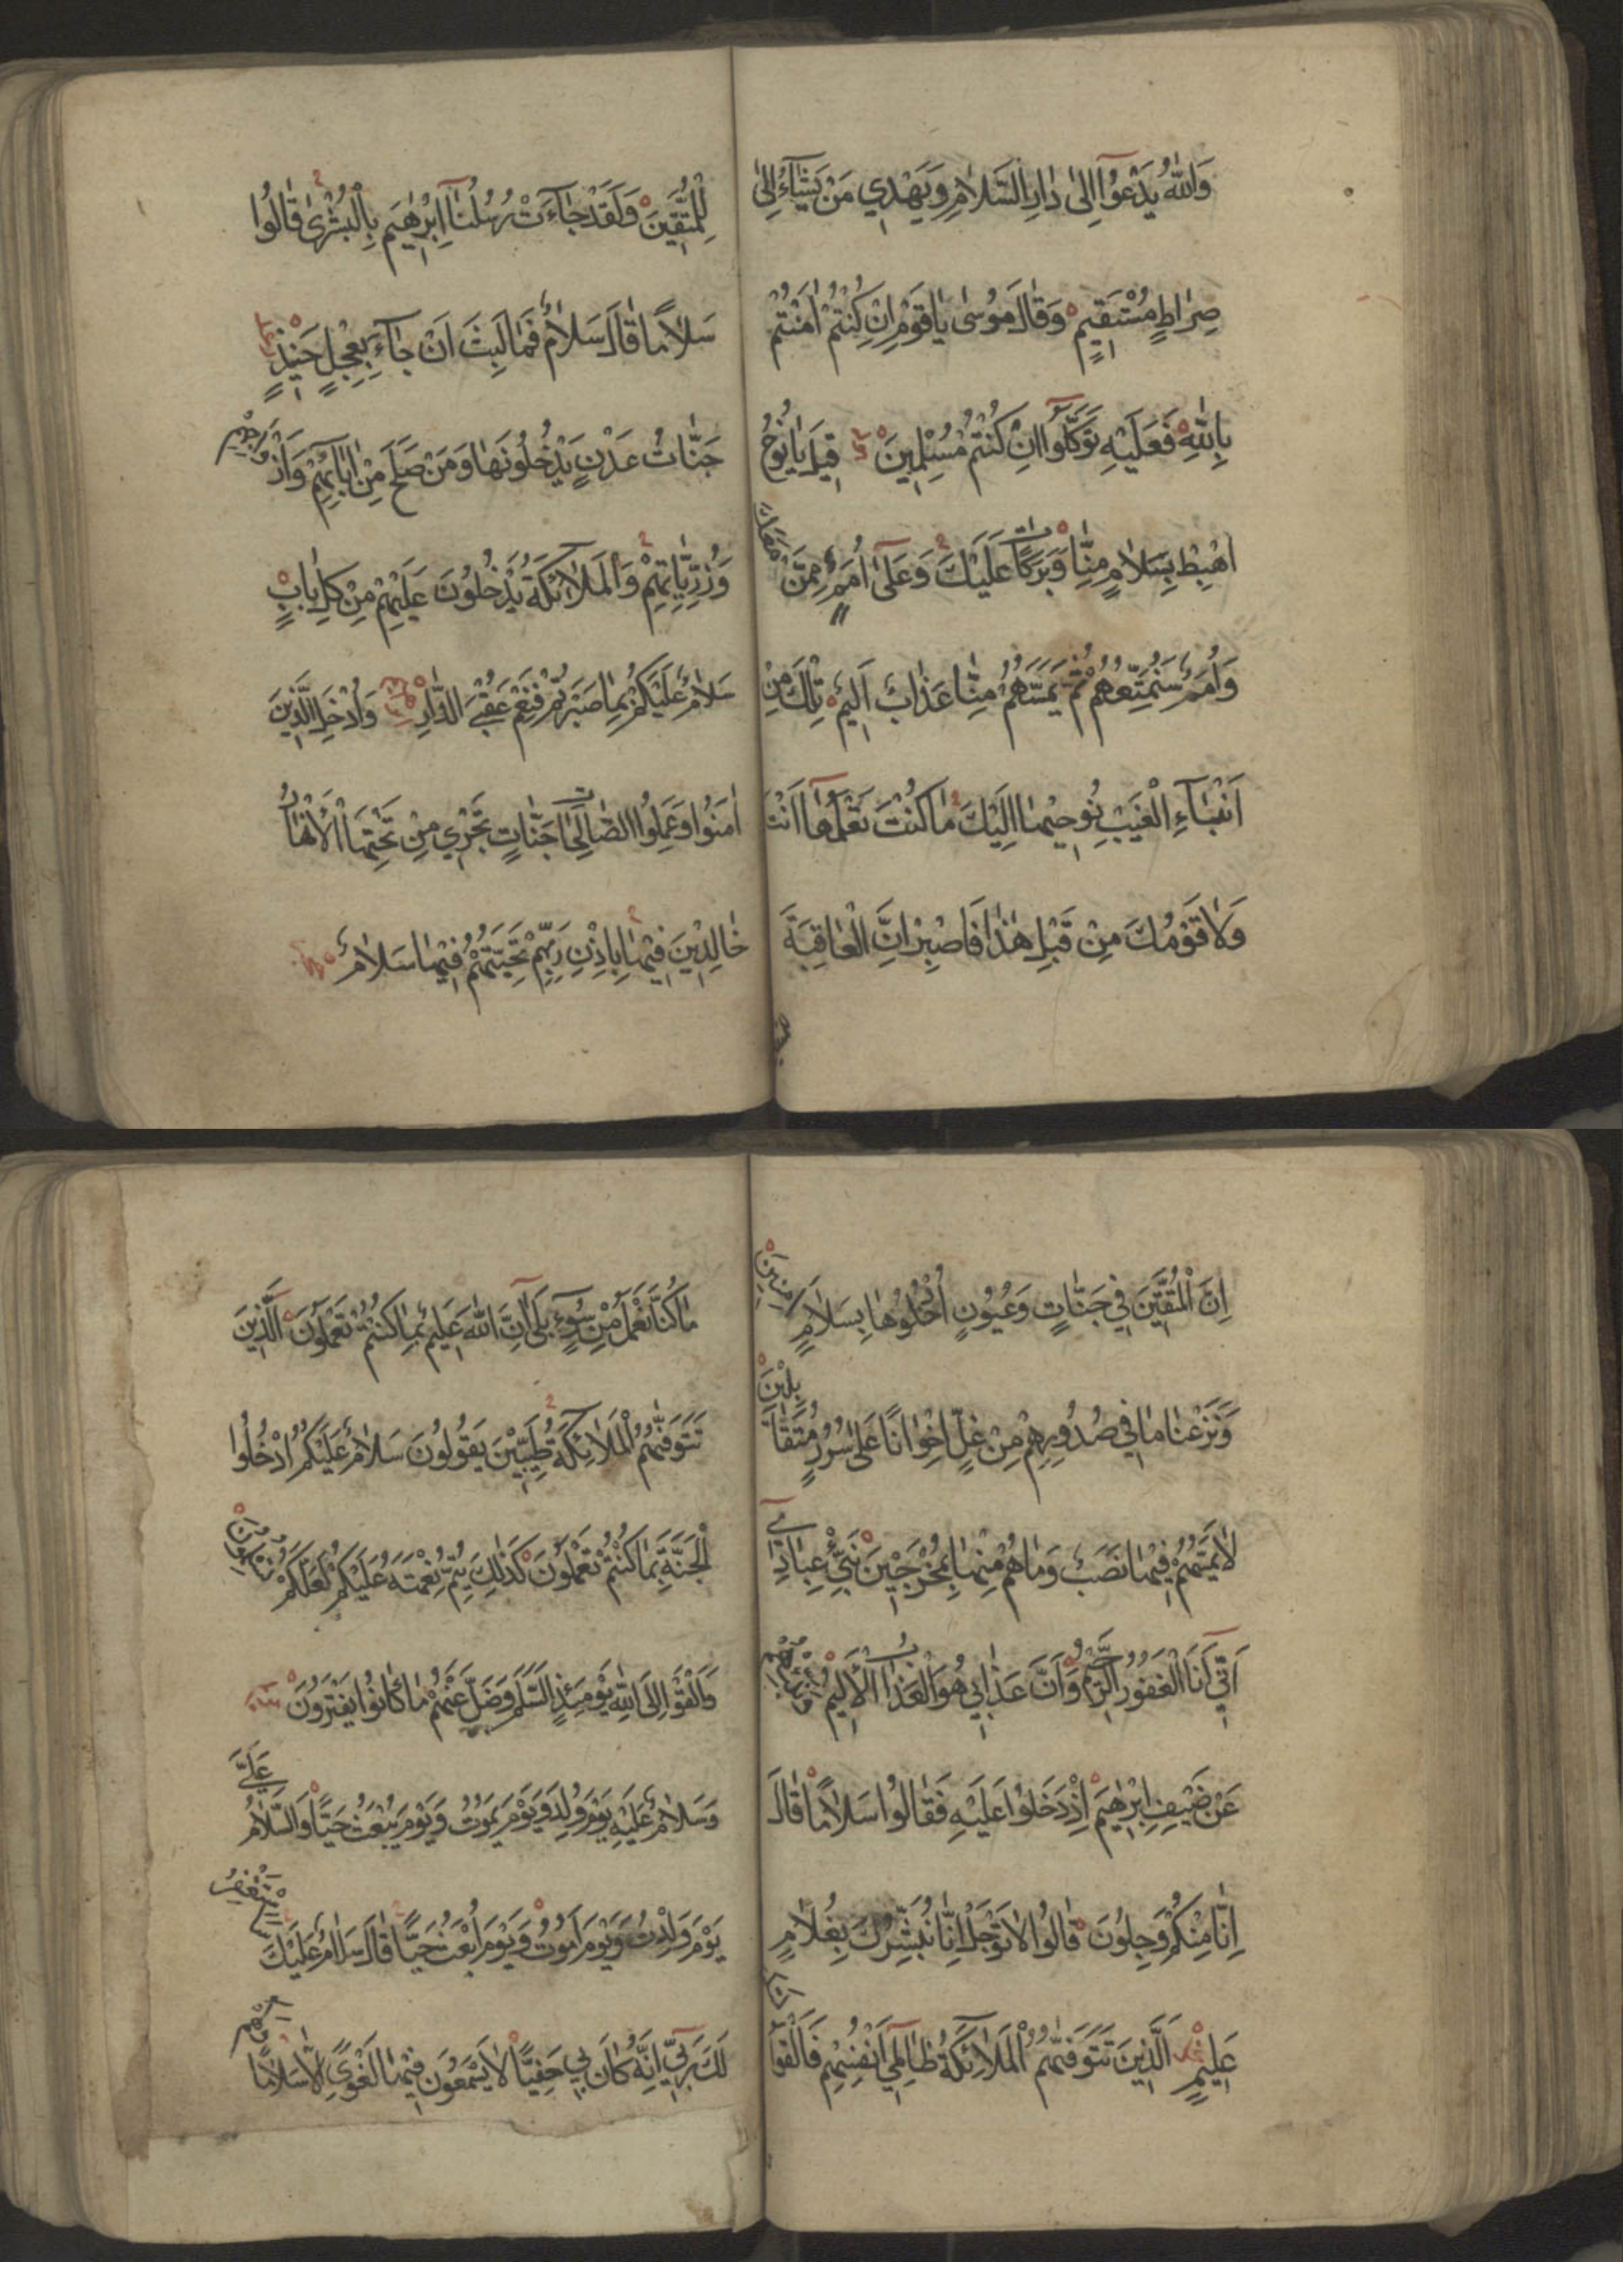 وَاللّٰهُ يَدْعُوٓا اِلٰى دَارِ السَّلَامِ وَيَهْدِي مَنْ يَشَآءُ اِلٰى
صِرَاطٍ مُسْتَقِيمٍ وَقَالَ مُوسٰى يَا قَوْمِ اِنْ كُنْتُمْ اٰمَنْتُمْ
بِاللّٰهِ فَعَلَيْهِ تَوَكَّلُوٓا اِنْ كُنْتُمْ مُسْلِمِينَ قِيلَ يَا نُوحُ
اهْبِطْ بِسَلَامٍ مِنَّا وَبَرَكَاتٍ عَلَيْكَ وَعَلٰٓى اُمَمٍ مِمَّنْ مَعَكَ
وَاُمَمٌ سَنُمَتِّعُهُمْ ثُمَّ يَمَسُّهُمْ مِنَّا عَذَابٌ اَلِيمٌ تِلْكَ مِنْ
اَنْبَآءِ الْغَيْبِ نُوحِيهَا اِلَيْكَ مَا كُنْتَ تَعْلَمُهَآ اَنْتَ
وَلَا قَوْمُكَ مِنْ قَبْلِ هٰذَا فَاصْبِرْ اِنَّ الْعَاقِبَةَ
لِلْمُتَّقِينَ وَلَقَدْ جَآءَتْ رُسُلُنَآ اِبْرٰهِيمَ بِالْبُشْرٰى قَالُوا
سَلَامًا قَالَ سَلَامٌ فَمَا لَبِثَ اَنْ جَآءَ بِعِجْلٍ حَنِيذٍ
جَنَّاتُ عَدْنٍ يَدْخُلُونَهَا وَمَنْ صَلَحَ مِنْ اٰبَآئِهِمْ وَاَزْوَاجِهِمْ
وَذُرِّيَّاتِهِمْ وَالْمَلَآئِكَةُ يَدْخُلُونَ عَلَيْهِمْ مِنْ كُلِّ بَابٍ
سَلَامٌ عَلَيْكُمْ بِمَا صَبَرْتُمْ فَنِعْمَ عُقْبَى الدَّارِ وَاُدْخِلَ الَّذِينَ
اٰمَنُوا وَعَمِلُوا الصَّالِحَاتِ جَنَّاتٍ تَجْرِي مِنْ تَحْتِهَا الْاَنْهَارُ
خَالِدِينَ فِيهَا بِاِذْنِ رَبِّهِمْ تَحِيَّتُهُمْ فِيهَا سَلَامٌ
اِنَّ الْمُتَّقِينَ فِي جَنَّاتٍ وَعُيُونٍ اُدْخُلُوهَا بِسَلَامٍ اٰمِنِينَ
وَنَزَعْنَا مَا فِي صُدُورِهِمْ مِنْ غِلٍّ اِخْوَانًا عَلٰى سُرُرٍ مُتَقَابِلِينَ
لَا يَمَسُّهُمْ فِيهَا نَصَبٌ وَمَا هُمْ مِنْهَا بِمُخْرَجِينَ نَبِّئْ عِبَادِيٓ
اَنِّيٓ اَنَا الْغَفُورُ الرَّحِيمُ وَاَنَّ عَذَابِي هُوَ الْعَذَابُ الْاَلِيمُ وَنَبِّئْهُمْ
عَنْ ضَيْفِ اِبْرٰهِيمَ اِذْ دَخَلُوا عَلَيْهِ فَقَالُوا سَلَامًا قَالَ
اِنَّا مِنْكُمْ وَجِلُونَ قَالُوا لَا تَوْجَلْ اِنَّا نُبَشِّرُكَ بِغُلَامٍ
عَلِيمٍ الَّذِينَ تَتَوَفّٰيهُمُ الْمَلَآئِكَةُ ظَالِمِيٓ اَنْفُسِهِمْ فَاَلْقَوُا السَّلَمَ
مَا كُنَّا نَعْمَلُ مِنْ سُوٓءٍ بَلٰٓى اِنَّ اللّٰهَ عَلِيمٌ بِمَا كُنْتُمْ تَعْمَلُونَ الَّذِينَ
تَتَوَفّٰيهُمُ الْمَلَآئِكَةُ طَيِّبِينَ يَقُولُونَ سَلَامٌ عَلَيْكُمُ ادْخُلُوا
الْجَنَّةَ بِمَا كُنْتُمْ تَعْمَلُونَ كَذٰلِكَ يُتِمُّ نِعْمَتَهُ عَلَيْكُمْ لَعَلَّكُمْ تُسْلِمُونَ
وَاَلْقَوْا اِلَى اللّٰهِ يَوْمَئِذٍ السَّلَمَ وَضَلَّ عَنْهُمْ مَا كَانُوا يَفْتَرُونَ
وَسَلَامٌ عَلَيْهِ يَوْمَ وُلِدَ وَيَوْمَ يَمُوتُ وَيَوْمَ يُبْعَثُ حَيًّا وَالسَّلَامُ عَلَيَّ
يَوْمَ وُلِدْتُ وَيَوْمَ اَمُوتُ وَيَوْمَ اُبْعَثُ حَيًّا قَالَ سَلَامٌ عَلَيْكَ سَاَسْتَغْفِرُ
لَكَ رَبِّيٓ اِنَّهُ كَانَ بِي حَفِيًّا لَا يَسْمَعُونَ فِيهَا لَغْوًا اِلَّا سَلَامًا